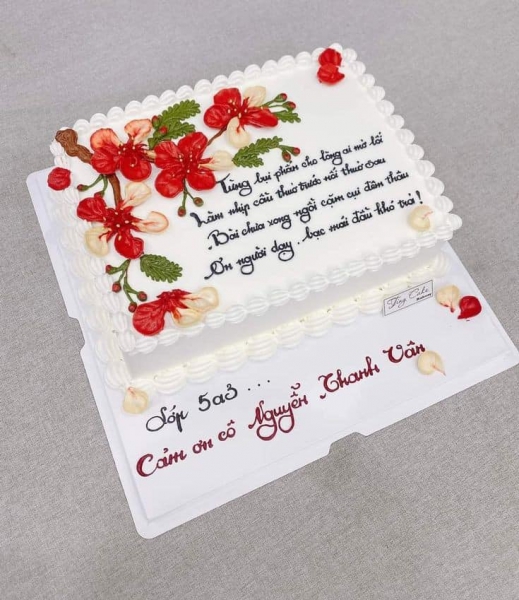 Từng bụi phấn cho lòng ai mở lối
Làm nhịp cầu thuở trước nối thuở sau
Bài chưa xong ngồi cặm cụi đêm thâu
Ơn người dạy.. bạc mái đầu khó trả!
Tiny Cake
Lớp 5a3...
Cảm ơn cô Nguyễn Thanh Vân